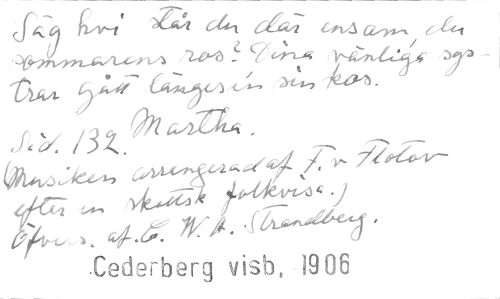 Säg hvi står du där ensam, du
sommarens ros? Dina vänliga sys-
trar gått längesen sin kos.
Sid. 132. Martha.
(Musiken arrengerad af F. v Flotov
efter en skottsk folkvisa.)
Öfvers. af. C. W. A. Strandberg.
Cederberg visb, 1906